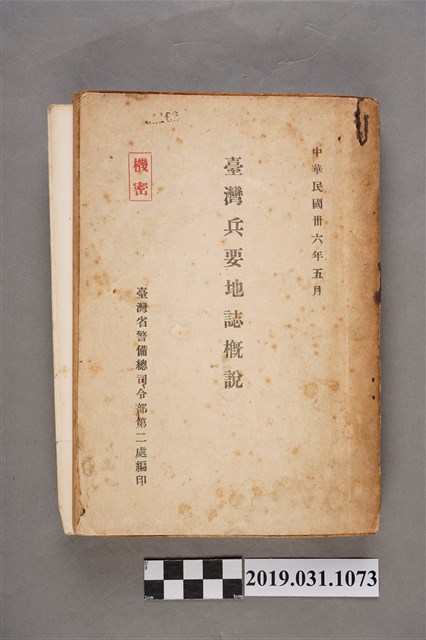 中華民國卅六年五月
臺灣兵要地誌概說
機密
臺灣省警備總司令部第二處編印
2019.031.1073